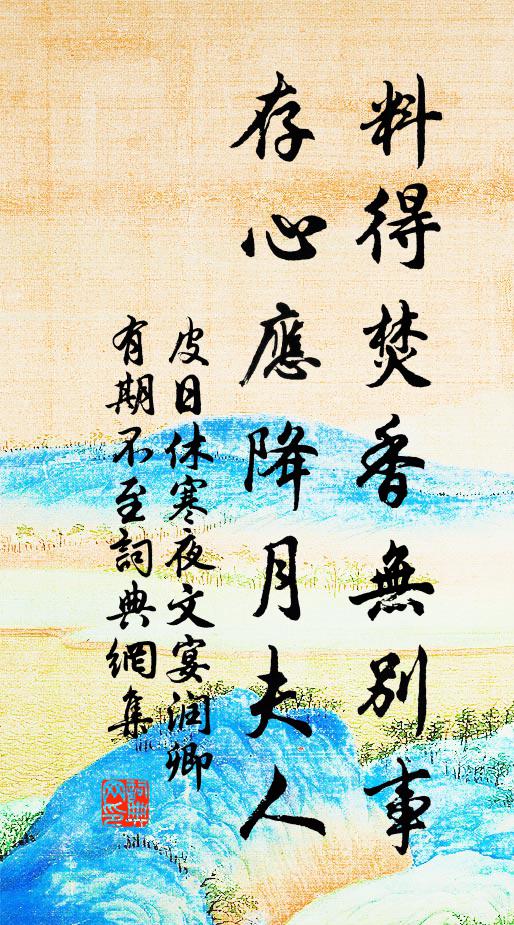 料得焚香無別事
存心應降月夫人
皮日休寒夜文宴润卿
有期不至詞典網集